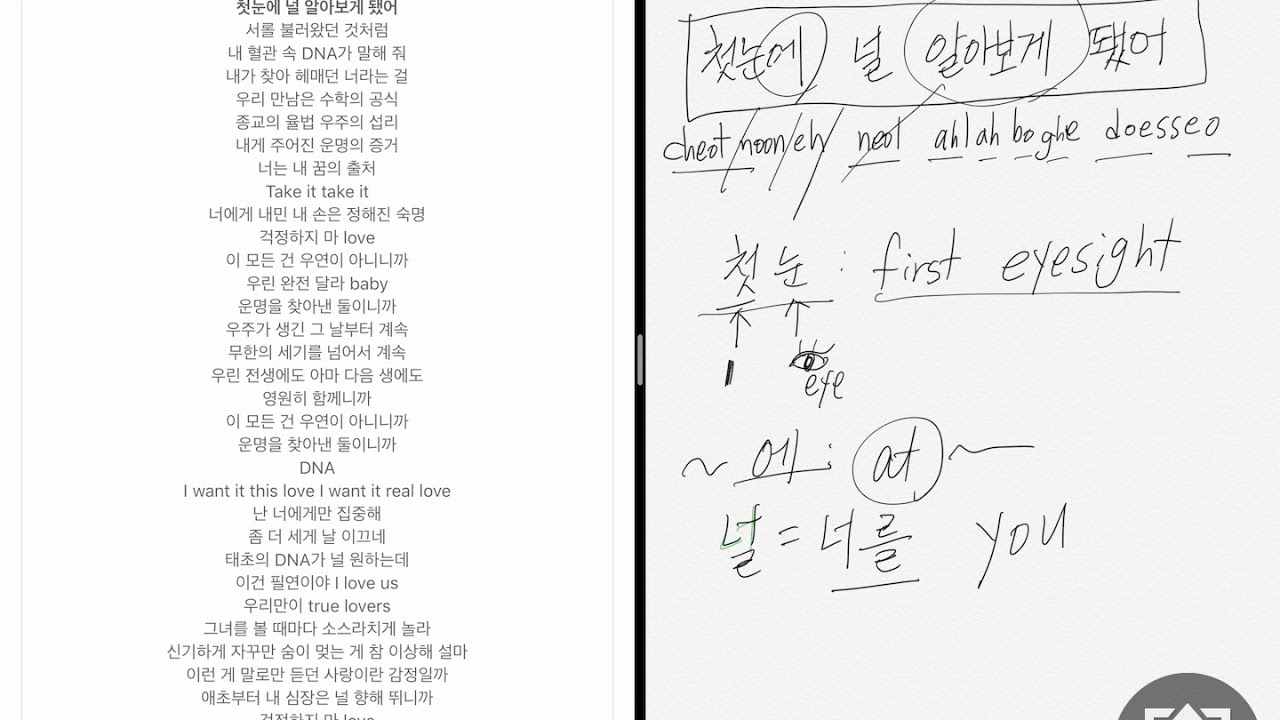 첫눈에 널 알아보게 됐어
서롤 불러왔던 것처럼
내 혈관 속 DNA가 말해 줘
내가 찾아 헤매던 너라는 걸
우리 만남은 수학의 공식
종교의 율법 우주의 섭리
내게 주어진 운명의 증거
너는 내 꿈의 출처
Take it take it
너에게 내민 내 손은 정해진 숙명
걱정하지 마 love
이 모든 건 우연이 아니니까
우린 완전 달라 baby
운명을 찾아낸 둘이니까
우주가 생긴 그 날부터 계속
무한의 세기를 넘어서 계속
우린 전생에도 아마 다음 생에도
영원히 함께니까
이 모든 건 우연이 아니니까
운명을 찾아낸 둘이니까
DNA
I want it this love I want it real love
난 너에게만 집중해
좀 더 세게 날 이끄네
태초의 DNA가 널 원하는데
이건 필연이야 I love us
우리만이 true lovers
그녀를 볼 때마다 소스라치게 놀라
신기하게 자꾸만 숨이 멎는 게 참 이상해 설마
이런 게 말로만 듣던 사랑이란 감정일까
애초부터 내 심장은 널 향해 뛰니까
걱정하지 마 love
첫눈에 널 알아보게 됐어
cheot/noon/eh/ neol ahlahboghe doesseo
첫눈 : first eyesight
1 eye
~에 : at ~
널 = 너를 you